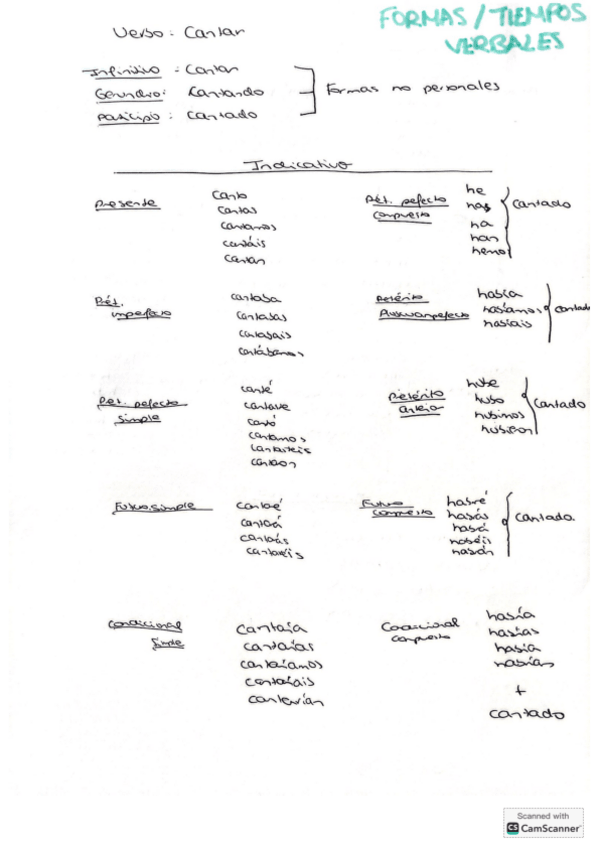 FORMAS / TIEMPOS
VERBALES
Verbo: Cantar
Infinitivo: Cantar
Gerundio: Cantando
Participio: Cantado
Formas no personales
Indicativo
Presente
Canto
Cantas
Cantamos
cantáis
Cantan
Prét. perfecto
compuesto
he
has
ha
han
hemos
Cantado
Prét.
imperfecto
cantaba
cantabas
cantabais
cantábamos
Pretérito
Pluscuamperfecto
había
habíamos
habíais
cantado
Pret. perfecto
simple
canté
cantó
cantamos
cantasteis
cantaron
Pretérito
anterior
hube
hubo
hubimos
hubieron
cantado
Futuro simple
cantaré
cantará
cantarás
cantaréis
Futuro
compuesto
habré
habrás
habrá
habréis
habrán
cantado.
Condicional
simple
cantaría
cantarías
cantaríamos
cantaríais
cantarían
Condicional
compuesto
habría
habrías
habría
habrían
+
cantado
Scanned with
CS CamScanner